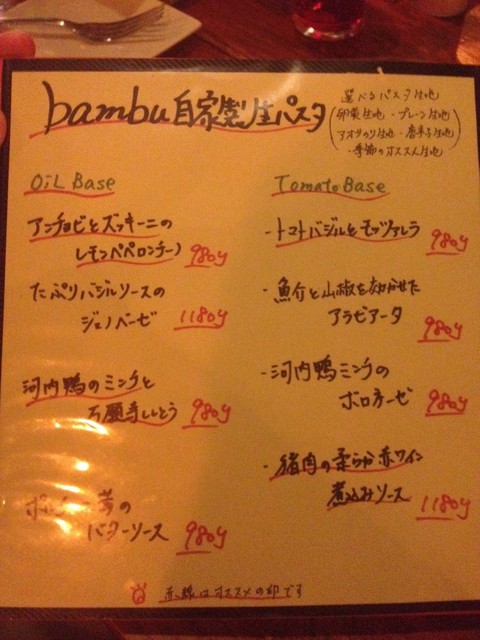 bambu 自家製生パスタ
選べるパスタ生地
(卵黄生地・プレーン生地
アオサのり生地・唐辛子生地)
・季節のオススメ生地
OiL Base
アンチョビとズッキーニの
レモンペペロンチーノ 980y
たっぷりバジルソースの
ジェノベーゼ 1180y
河内鴨のミンチと
万願寺ししとう 980y
の
バターソース 980y
Tomato Base
・トマトバジルとモッツァレラ 980y
・魚介と山椒を効かせた
アラビアータ 980y
・河内鴨ミンチの
ボロネーゼ 980y
・猪肉の柔らか赤ワイン
煮込みソース 1180y
赤線はオススメの印です